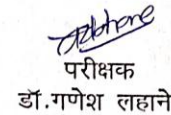 परीक्षक
डॉ.गणेश लहाने